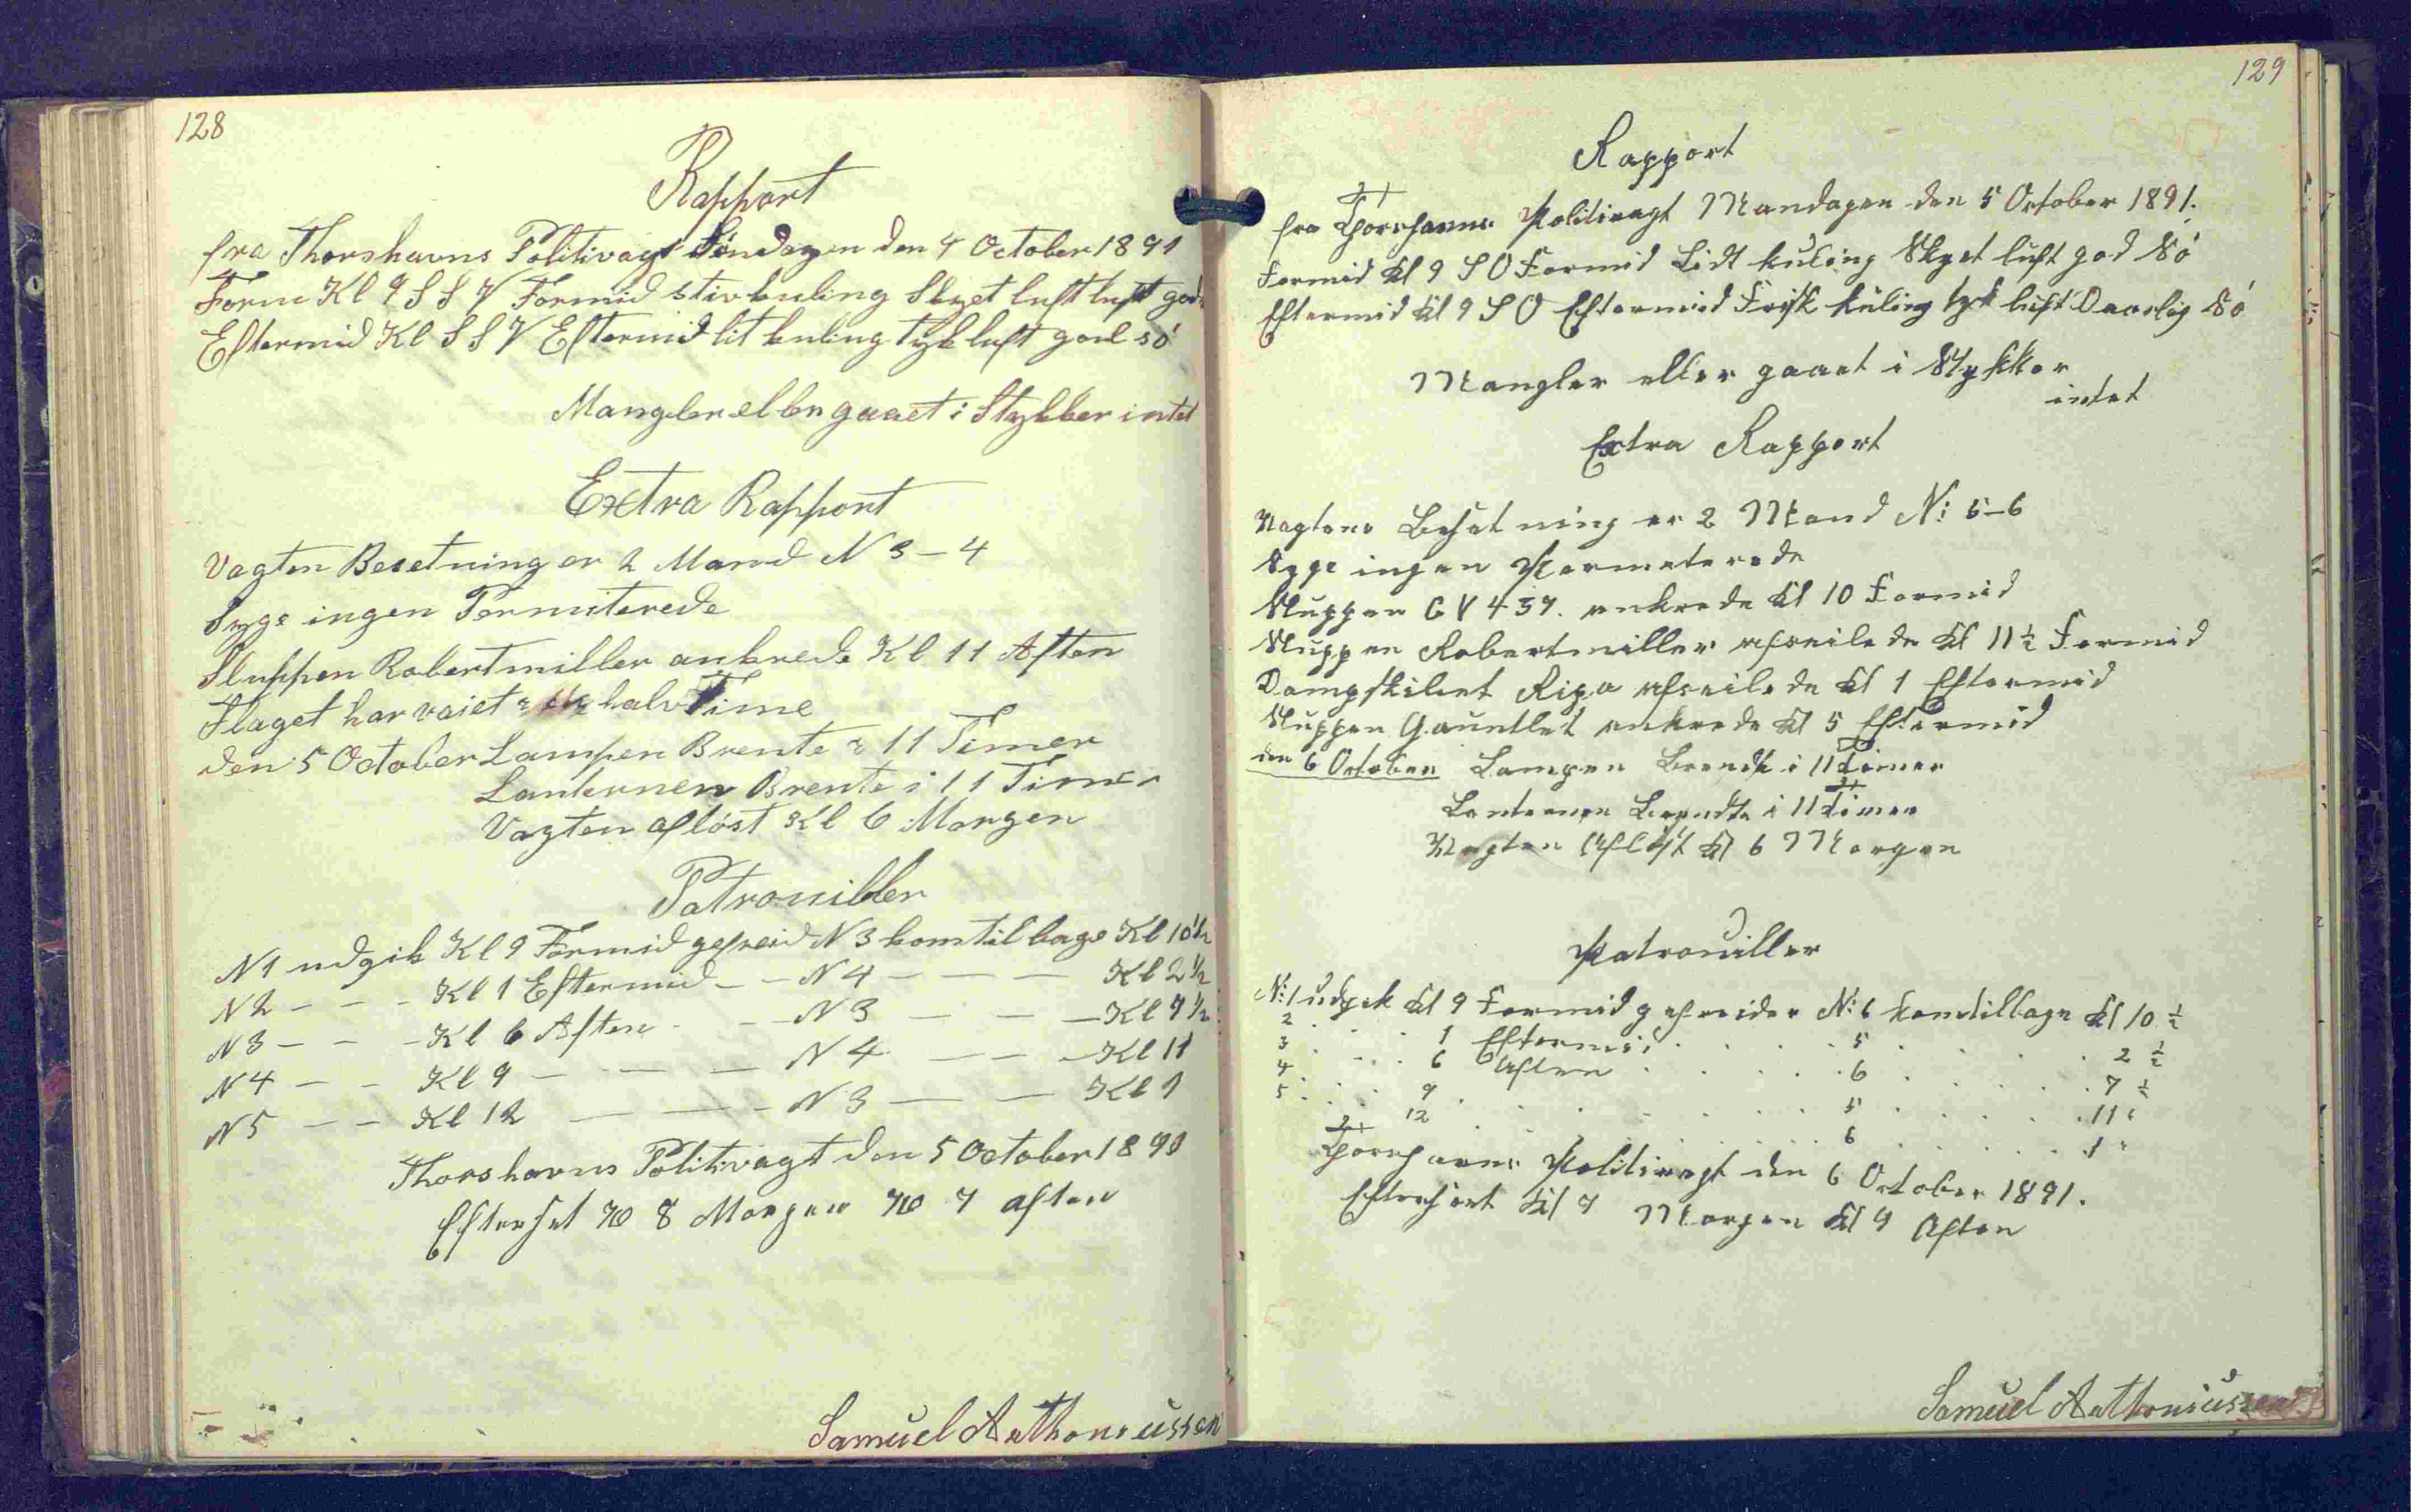 128
Rapport
fra Thorshavns Politivagt Søndagen den 4 October 1891
Form Kl 9 S S V Formid stivkuling Skyet luft luft god
Eftermid Kl S S V Eftermid lit kuling tyk luft god sö
Mangler eller gaaet i Stykker intet
Extra Rapport
Vagten Besetning er 2 Mand N 3 – 4
Syge ingen Permiterede
Sluppen Robertmiller ankrede Kl 11 Aften
Flaget har vaiet halv Time
den 5 October Lampen Brente i 11 Timer
Lanternen Brente i 11 Timer
Vagten aflöst Kl 6 Morgen
Patrouiller
N 1 udgik Kl 9 Formid gefreid N 3 kom til bage Kl 10 1/2
N 2 – – – Kl 1 Eftermid – – N 4 – – – Kl 2 1/2
N 3 – – – Kl 6 Aften – – N 3 – – – Kl 7 1/2
N 4 – – Kl 9 – – – N 4 – – – Kl 11
N 5 – – Kl 12 – – – N 3 – – Kl 1
Thorshavns Politivagt den 5 October 1891
Efterset Kl 8 Morgen Kl 7 aften
Samuel Anthoniussen
129
Rapport
fra Thorshavns Politivagt Mandagen den 5 October 1891.
Formid Kl 9 S O Formid Lidt kuling Skyet luft god Sö
Eftermid Kl 9 S O Eftermid Frisk kuling tyk luft Daarlig Sö
Mangler eller gaaet i Stykker
intet
Extra Rapport
Vagtens Besetning er 2 Mand N: 5–6
Syge ingen Permeterede
Sluppen G Y 437. ankrede Kl 10 Formid
Sluppen Robertmiller afseilede Kl 11 1/2 Formid
Dampskibet Ripa afseilede Kl 1 Eftermid
Sluppen Gauntlet ankrede Kl 5 Eftermid
den 6 October Lampen Brendte i 11 Timer
Lanternen Brendte i 11 Timer
Vagten Aflöst Kl 6 Morgen
Patrouiller
N: 1 udgik Kl 9 Formid gefreider N: 6 kom tilbage Kl 10 1/2
2 . . . 1 Eftermid . . . 5 . . . 2 1/2
3 . . . 6 Aften . . . 6 . . . 7 1/2
4 . . . 9 . . . 5 . . . 11 "
5 . . . 12 . . . 6 . . . 1 "
Thorshavns Politivagt den 6 October 1891.
Efterseet Kl 7 Morgen Kl 9 Aften
Samuel Anthoniussen